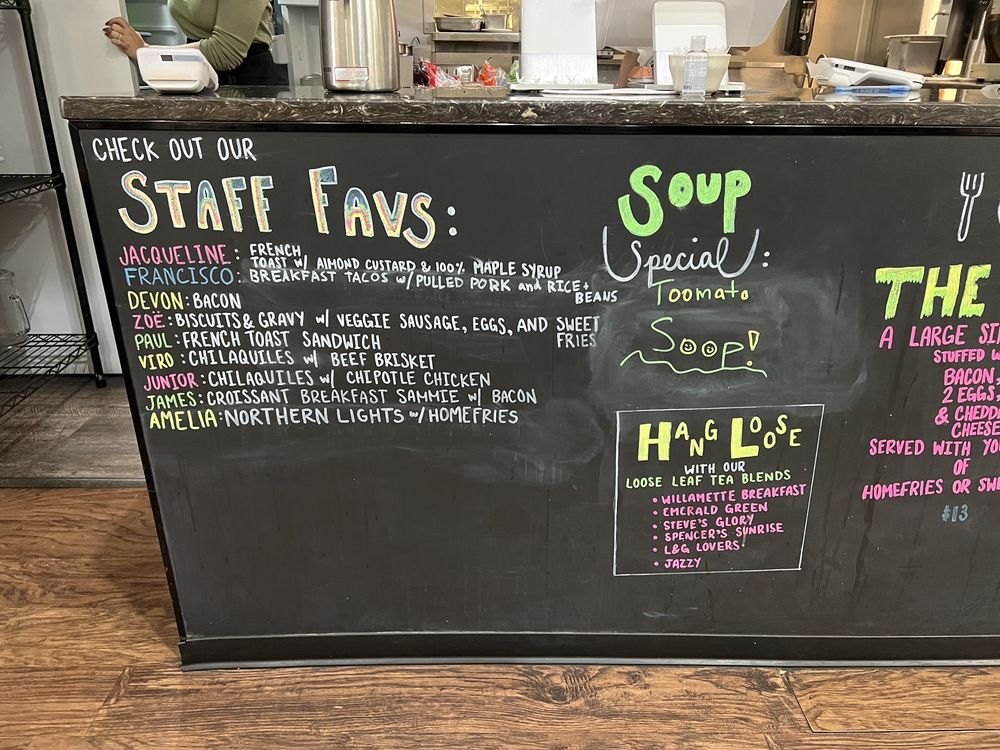 CHECK OUT OUR
STAFF FAVS:
JACQUELINE: FRENCH
TOAST w/ AlMOND CUSTARD & 100% MAPLE SYRUP
FRANCISCO: BREAKFAST TACOS w/ PULLED PORK and RICE+
BEANS
DEVON: BACON
ZOË: BISCUITS & GRAVY w/ VEGGIE SAUSAGE, EGGS, AND SWEET
FRIES
PAUL: FRENCH TOAST SANDWICH
VIRO: CHILAQUILES w/ BEEF BRISKET
JUNIOR: CHILAQUILES w/ CHIPOTLE CHICKEN
JAMES: CROISSANT BREAKFAST SAMMIE w/ BACON
AMELIA: NORTHERN LIGHTS w/ HOMEFRIES
SOUP
Special:
Toomato
Soop!
HANG LOOSE
WITH OUR
LOOSE LEAF TEA BLENDS
• WILLAMETTE BREAKFAST
• EMERALD GREEN
• STEVE'S GLORY
• SPENCER'S SUNRISE
• L&G LOVERS
• JAZZY
THE
A LARGE
STUFFED
BACON,
2 EGGS,
& CHEDD
CHEESE
SERVED WITH
OF
HOMEFRIES OR
$13